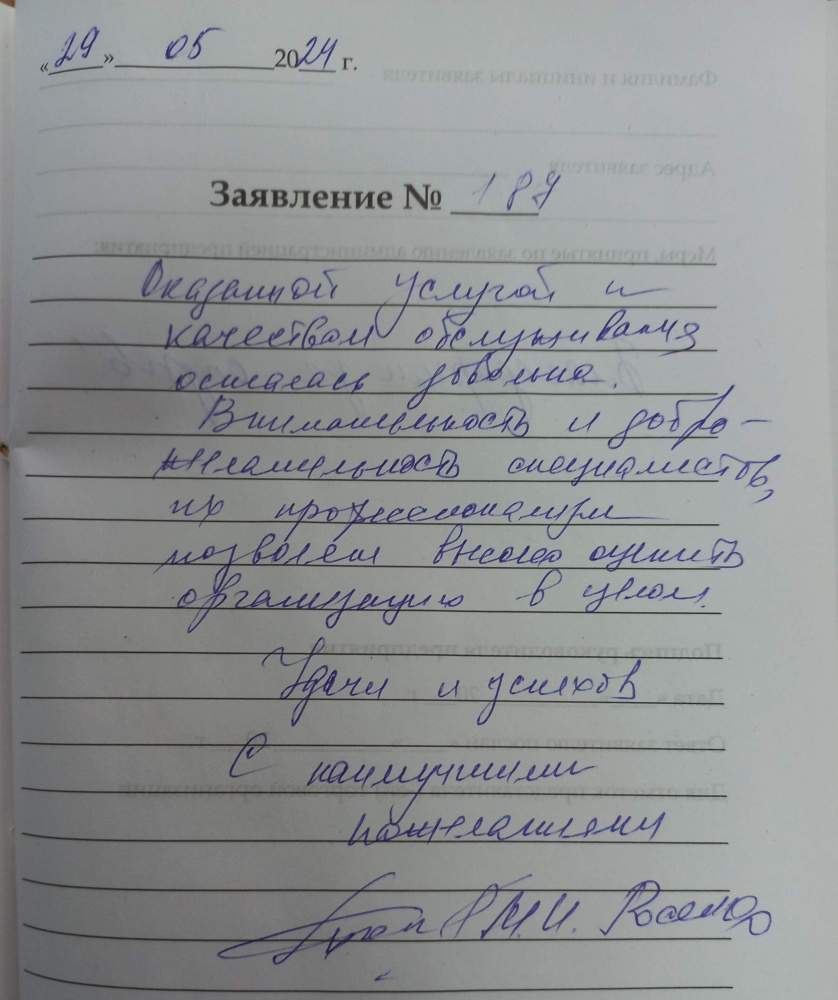 «29» 05 2024 г.
Заявление № 187
Оказанной услугой и
качеством обслуживания
осталась довольна.
Внимательность и добро-
желательность специалистов,
их профессионализм
позволяет высоко оценить
организацию в целом.
Удачи и успехов
С наилучшими
пожеланиями
М.И.